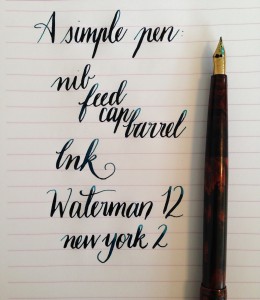 A simple pen:
nib
feed
cap
barrel
Ink
Waterman 12
new york 2